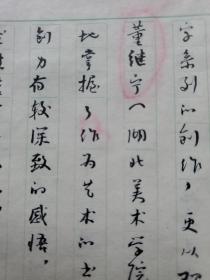 字系列的创作，更以
董继宁（湖北美术学院
地掌握了作为艺术的书
创力有较深致的感悟，